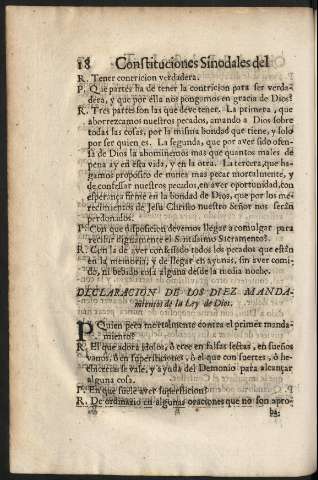 18 Constituciones Sinodales del
R. Tener contricion verdadera.
P. Que partes ha de tener la contricion para ser verda-
dera, y que por ella nos pongamos en gracia de Dios?
R. Tres partes son las que deve tener. La primera, que
aborrezcamos nuestros pecados, amando a Dios sobre
todas las cosas, por la misma bondad que tiene, y solo
por ser quien es. La segunda, que por aver sido ofen-
sa de Dios la abominemos mas que quantos males de
pena ay en esta vida, y en la otra. La tercera, que ha-
gamos proposito de nunca mas pecar mortalmente, y
de confessar nuestros pecados, en aver oportunidad, con
esperança firme en la bondad de Dios, que por los me-
recimientos de Jesu Christo nuestro Señor nos serán
perdonados.
P. Con que disposicion devemos llegar a comulgar para
recibir dignamente el Santissimo Sacramento?
R. Con la de aver confessado todos los pecados que están
en la memoria, y de llegar en ayunas, sin aver comi-
do, ni bebido cosa alguna desde la media noche.
DECLARACION DE LOS DIEZ MANDA-
mientos de la Ley de Dios.
P. Quien peca mortalmente contra el primer manda-
miento?
R. El que adora idolos, ò cree en falsas sectas, en sueños
vanos, ò en supersticiones, ò el que con suertes, ò he-
chicerias se vale, y ayuda del Demonio para alcançar
alguna cosa.
P. En que suele aver supersticion?
R. De ordinario en algunas oraciones que no son apro-